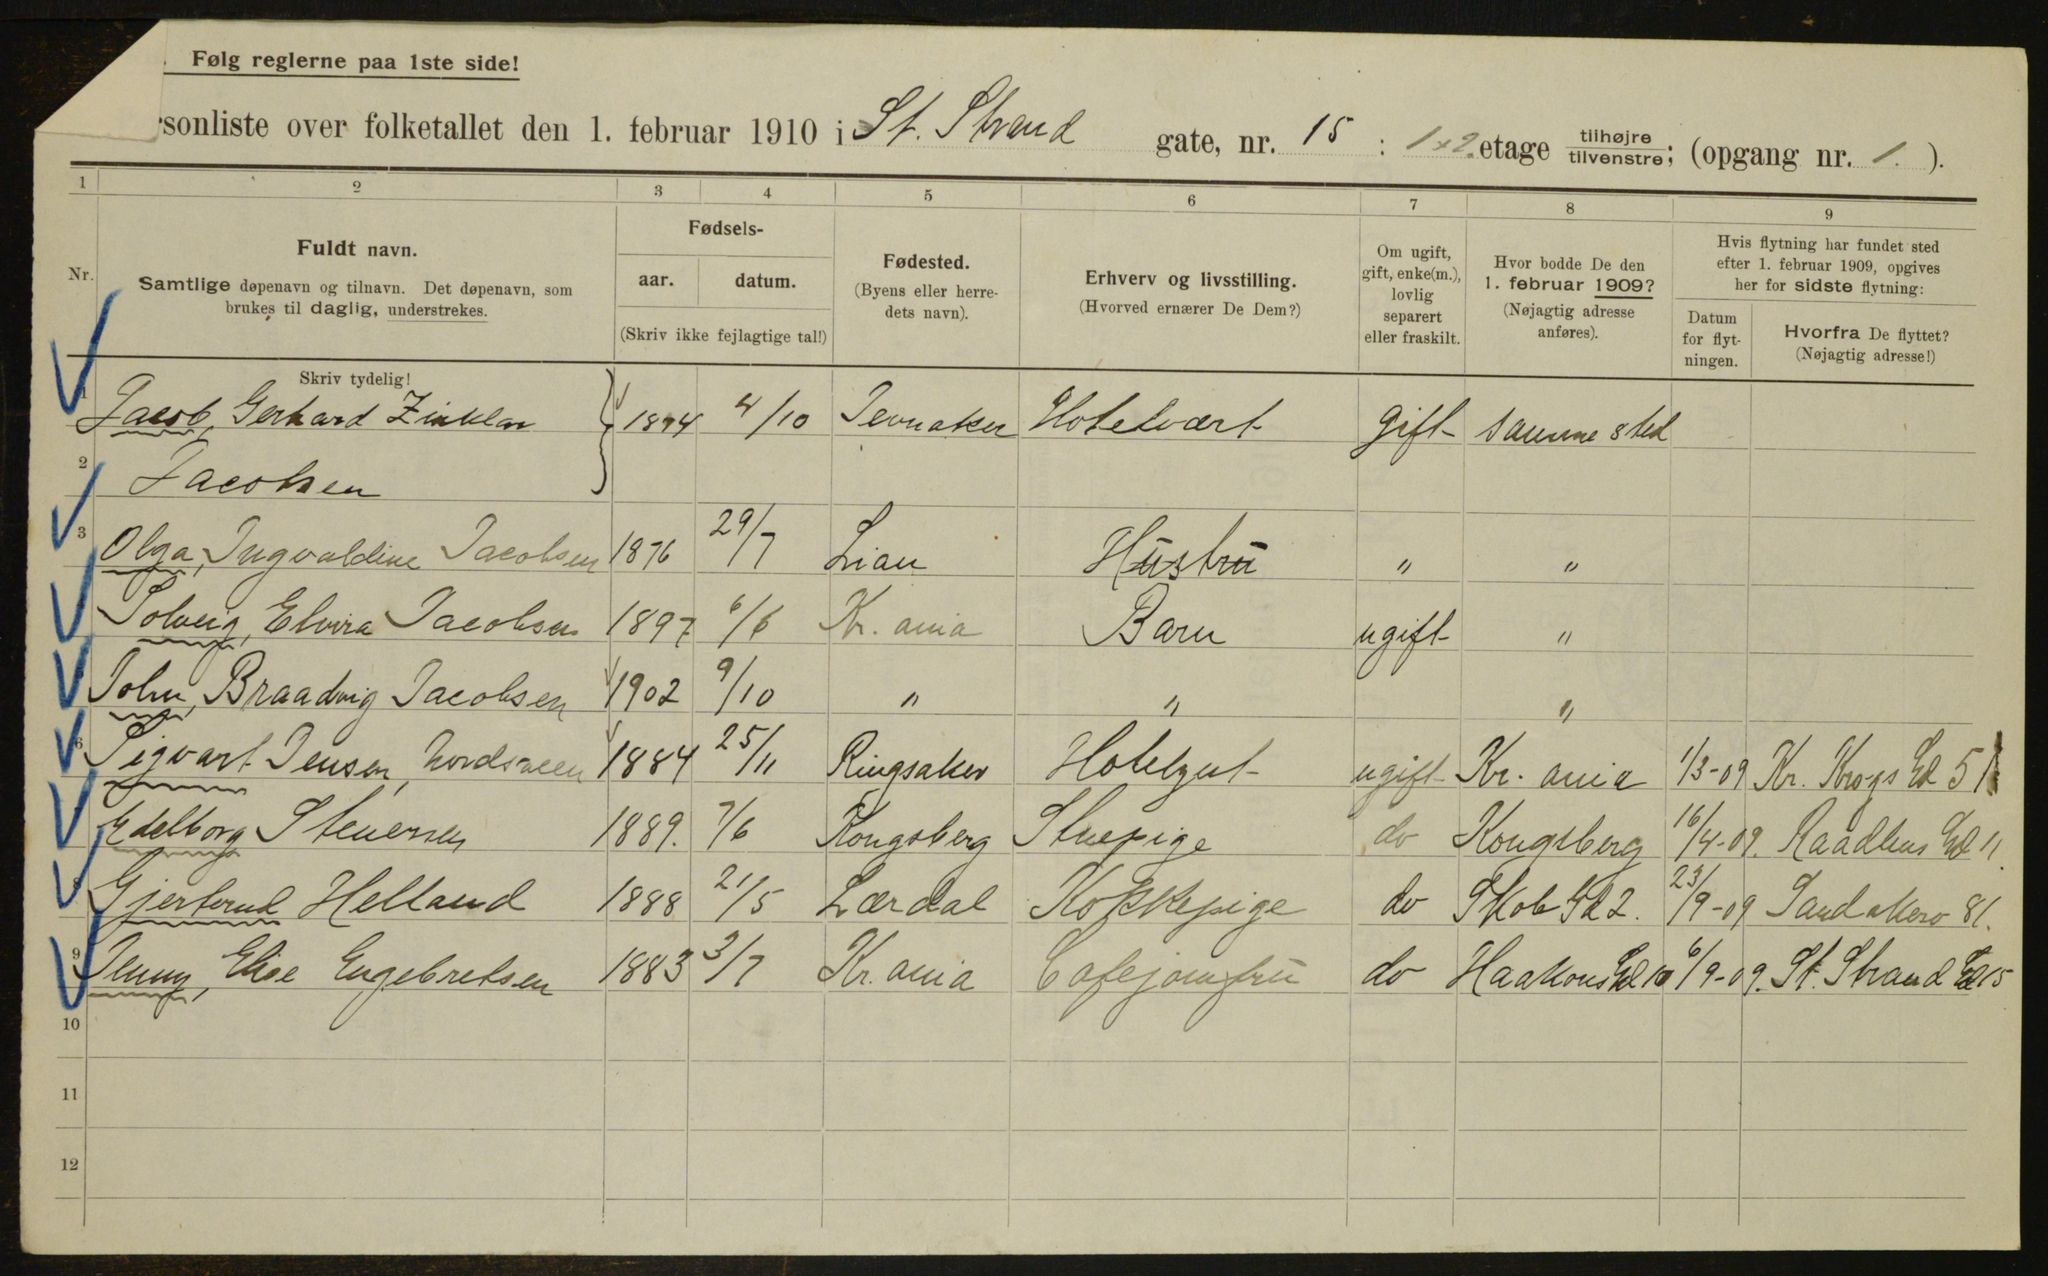 Følg reglerne paa 1ste side!
rsonliste over folketallet den 1. februar 1910 i St. Strand gate, nr. 15 : 1 x 2. etage tilhøjre tilvenstre; (opgang nr. 1. ).
1 2 3 4 5 6 7 8 9
Nr.
Fuldt navn.
Samtlige døpenavn og tilnavn. Det døpenavn, som
brukes til daglig, understrekes.
Skriv tydelig!
Fødsels-
aar. datum.
(Skriv ikke fejlagtige tal!)
Fødested.
(Byens eller herre-
dets navn).
Erhverv og livsstilling.
(Hvorved ernærer De Dem?)
Om ugift,
gift, enke(m.),
lovlig
separert
eller fraskilt.
Hvor bodde De den
1. februar 1909?
(Nøjagtig adresse
anføres).
Hvis flytning har fundet sted
efter 1. februar 1909, opgives
her for sidste flytning:
Datum
for flyt-
ningen.
Hvorfra De flyttet?
(Nøjagtig adresse!)
1 Jacob, Gerhard 1874 4/10 Jevnaker Hotelvært gift samme sted
2 Jacobsen
3 Olga, Ingvaldine Jacobsen 1876 29/7 Lian Hustru " "
Solveig, Elvira Jacobsen 1897 6/6 Kr. ania Barn ugift "
John, Braadvig Jacobsen 1902 9/10 " " "
6 Sigvart Jensen, Nordsveen 1884 25/11 Ringsaker Hotelgut ugift Kr. ania 1/3-09 Kr. Krogs Gd 51
Edelborg Stenersen 1889. 7/6 Kongsberg Stuepige do Kongsberg 16/4-09. Raadhus Gd 11.
8 Gjertrud Helland 1888 21/5 Lærdal Kokkepige do Skob Gd 2. 23/9-09 Sandakerv 81.
9 Jenny, Elise Engebretsen 1883 3/7 Kr. ania Cafejomfru do Haakons Gd 10 6/9-09. St. Strand Gd 15
10
11
12